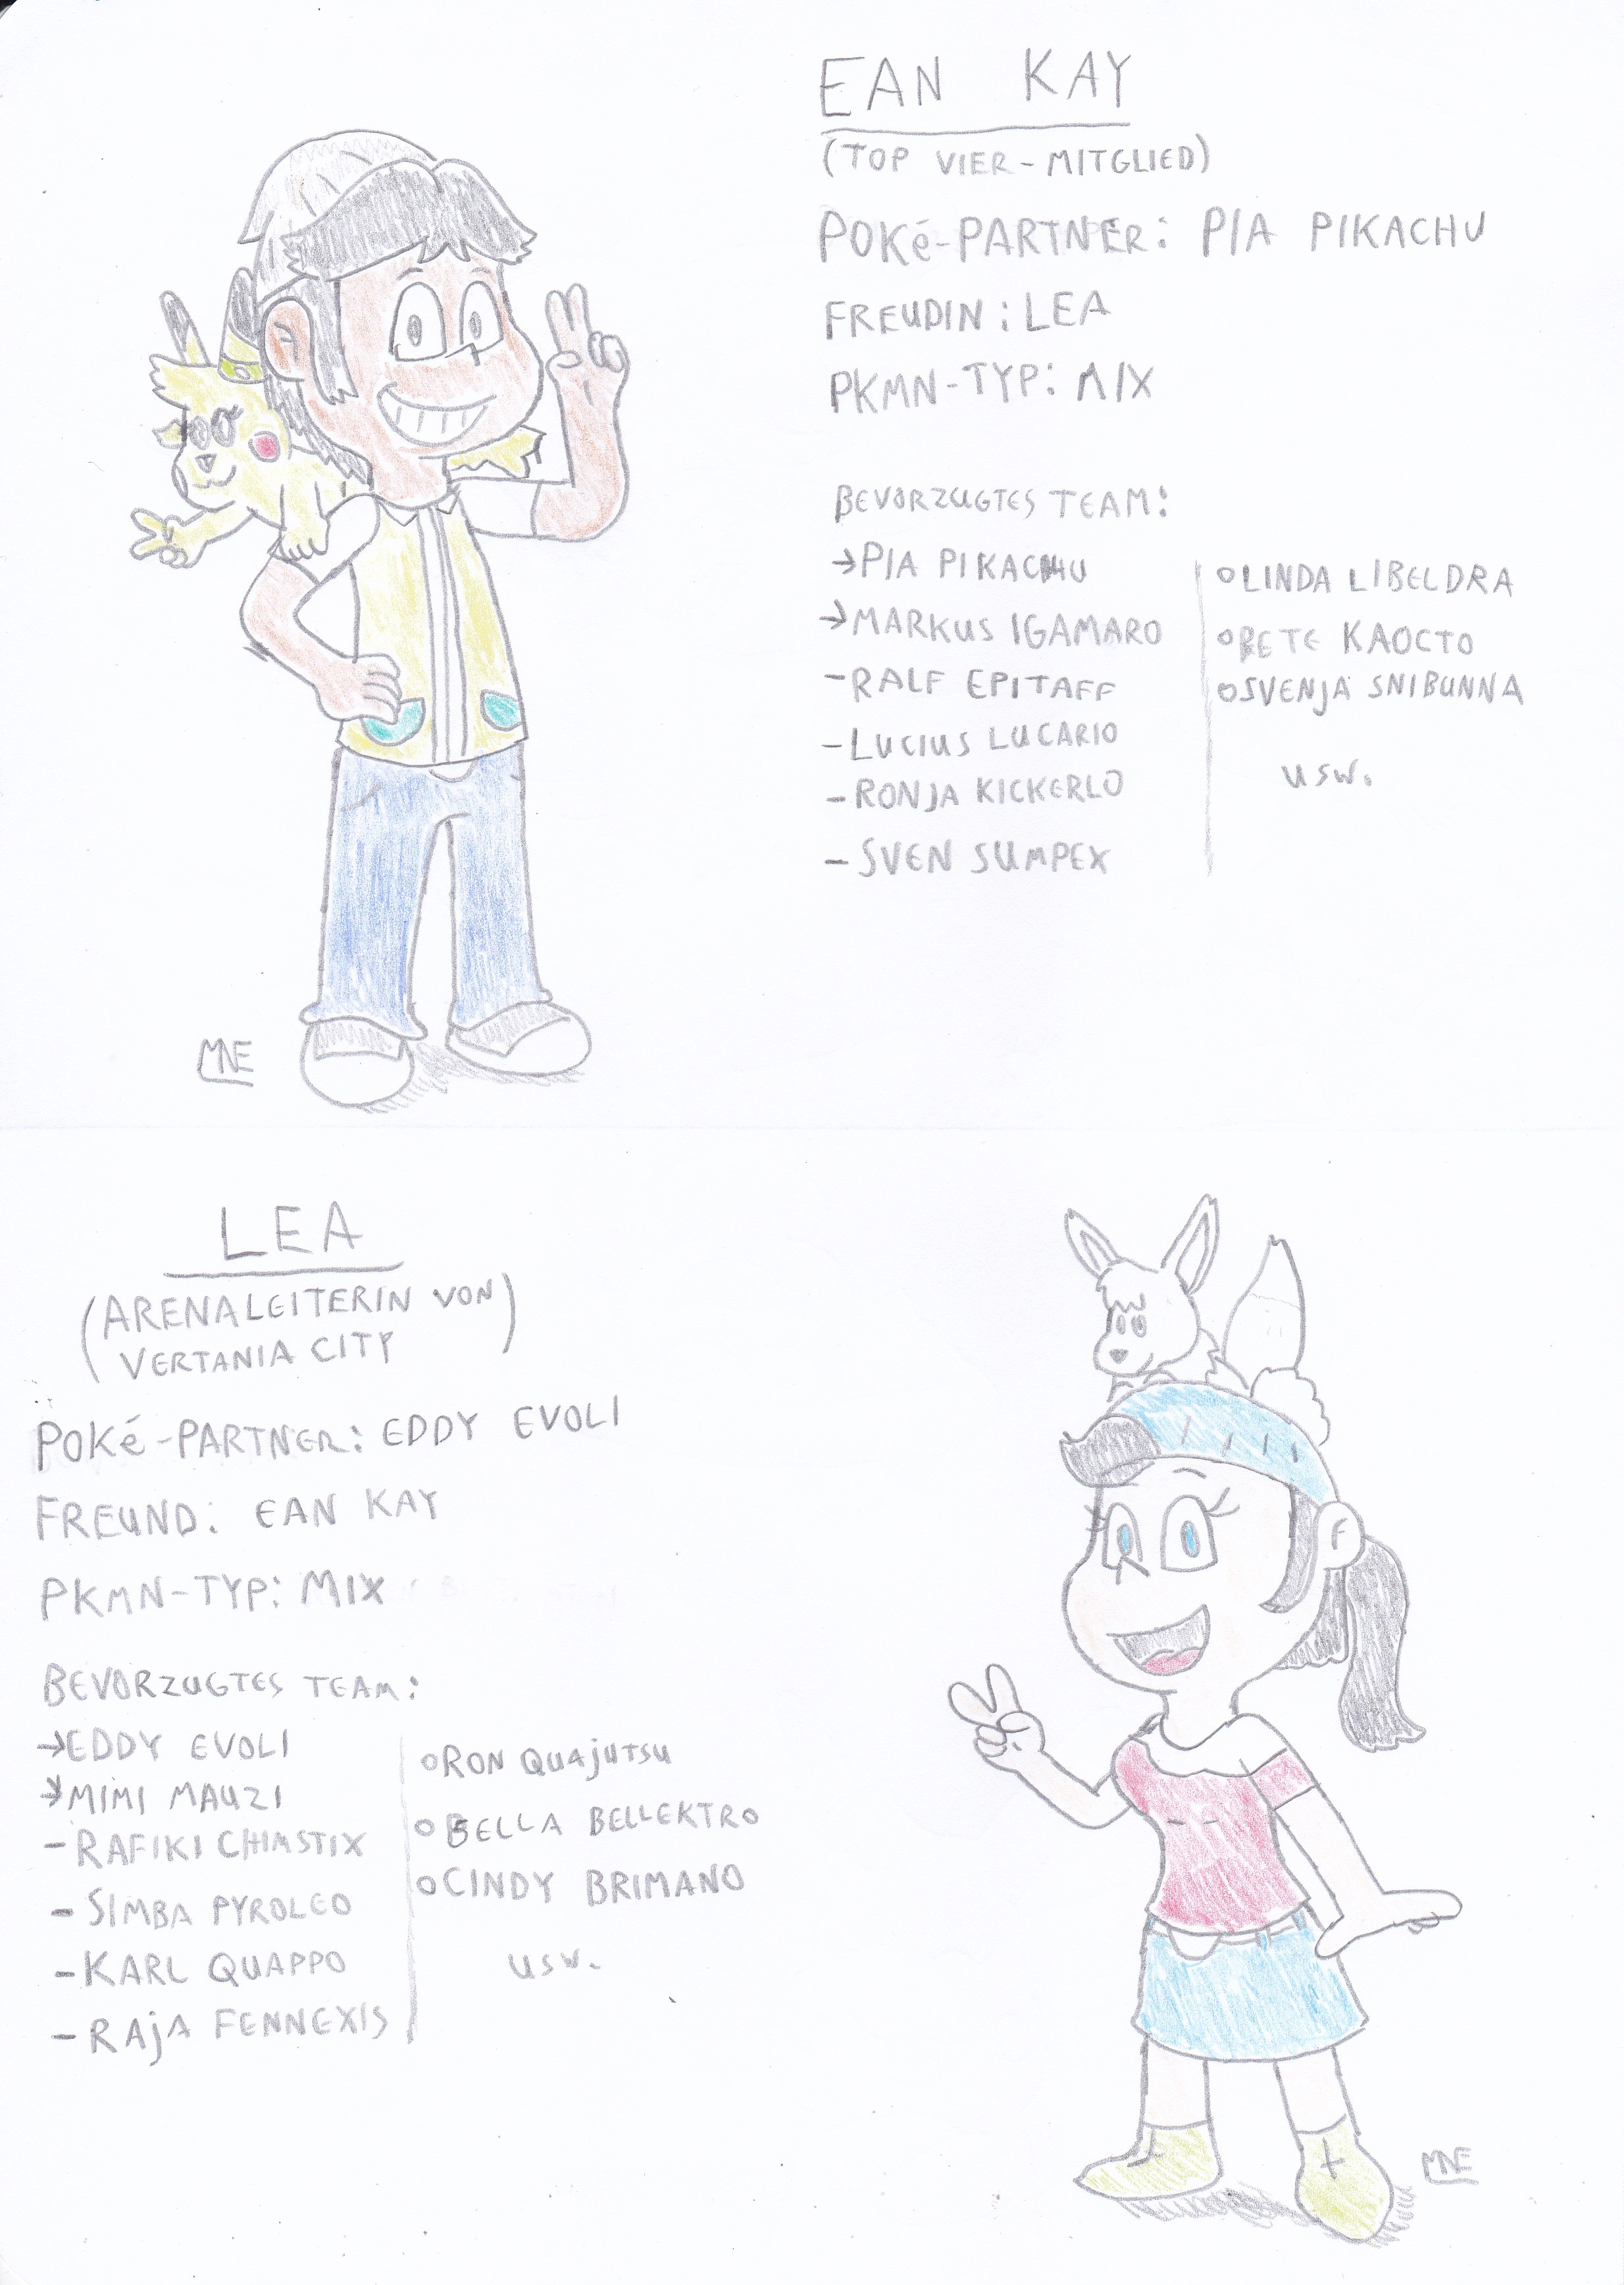 EAN KAY
(TOP VIER-MITGLIED)
POKé-PARTNER: PIA PIKACHU
FREUDIN: LEA
PKMN-TYP: MIX
BEVORZUGTES TEAM:
→PIA PIKACHU
→MARKUS IGAMARO
-RALF EPITAFF
-LUCIUS LUCARIO
-RONJA KICKERLO
-SVEN SUMPEX
oLINDA LIBELDRA
oBETE KAOCTO
oSVENJA SNIBUNNA
usw.
MNE
LEA
(ARENALEITERIN VON
VERTANIA CITY)
POKé-PARTNER: EDDY EVOLI
FREUND: EAN KAY
PKMN-TYP: MIX
BEVORZUGTES TEAM:
→EDDY EVOLI
→MIMI MAUZI
-RAFIKI CHIMSTIX
-SIMBA PYROLEO
-KARL QUAPPO
-RAJA FENNEXIS
oRON QUAJUTSU
oBELLA BELLEKTRO
oCINDY BRIMANO
usw.
MNE